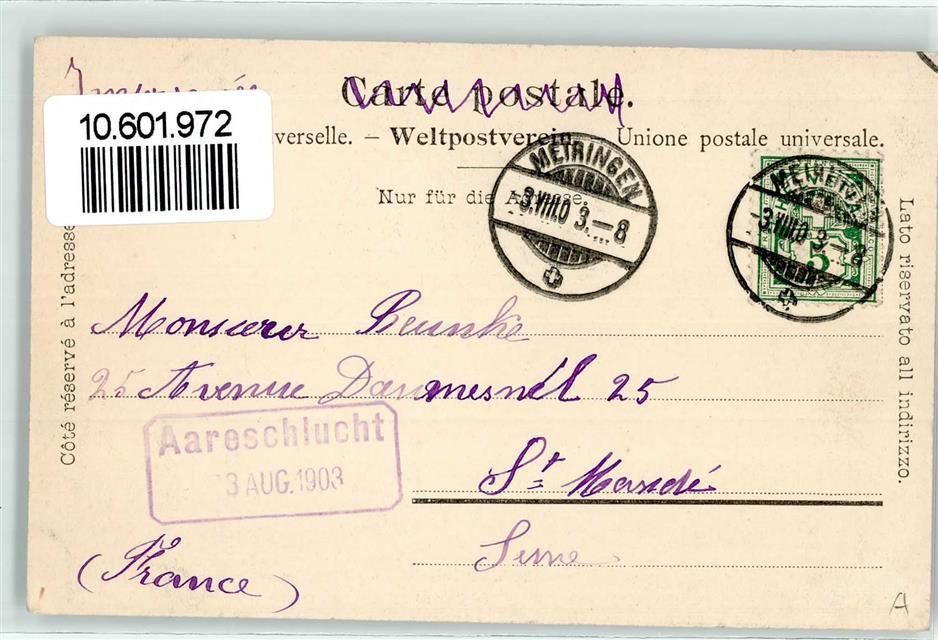 Carte postale.
10.601.972
verselle. – Weltpostverein Unione postale universale.
Nur für die Adresse.
MEIRINGEN
3.VIII.03.–8
MEIRINGEN
3.VIII.03.–8
5
Côté réservé à l'adresse
Lato riservato all indirizzo.
Monsieur
25 Avenue Daumesnil 25
Aareschlucht
3 AUG. 1903
St Mandé
Seine
(France)
A